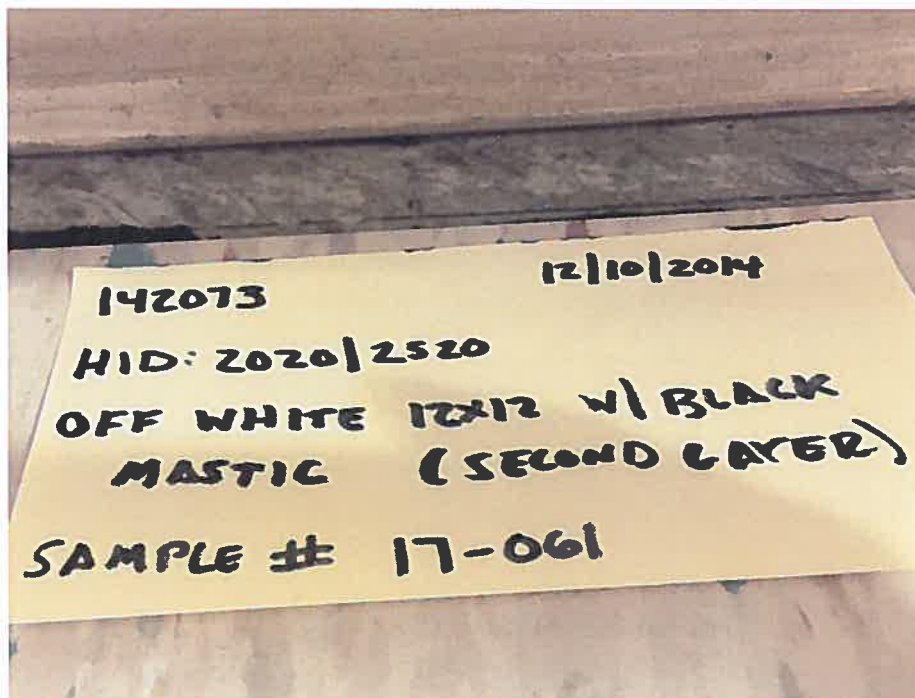 142073 12/10/2014
HID: 2020/2520
OFF WHITE 12X12 W/ BLACK
MASTIC (SECOND LAYER)
SAMPLE # 17-061